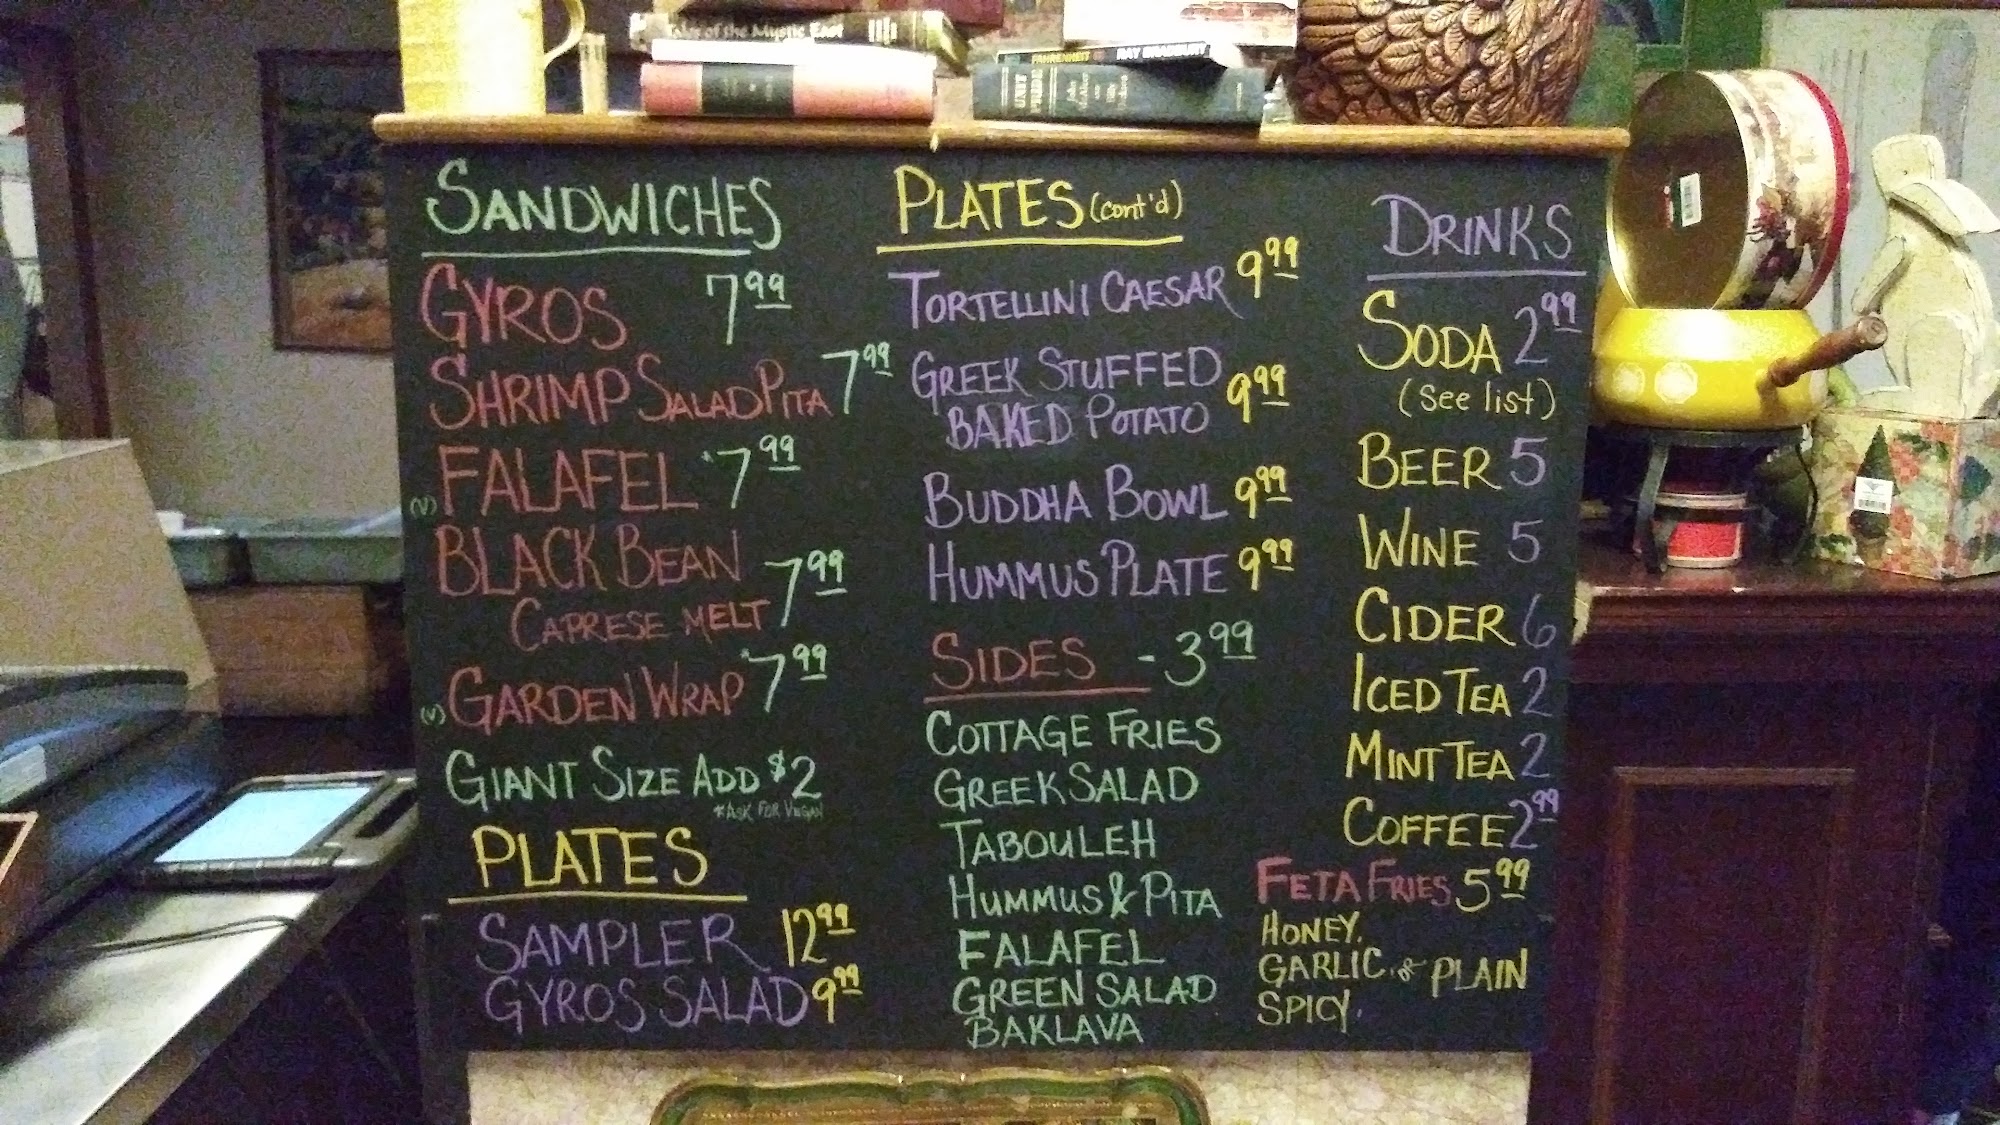 Tales of the Mystic East
FAHRENHEIT RAY BRADBURY
SANDWICHES
GYROS 7.99
SHRIMP SALAD PITA 7.99
(V) FALAFEL *7.99
BLACK BEAN
CAPRESE MELT 7.99
(V) GARDEN WRAP *7.99
GIANT SIZE ADD $2
*ASK FOR VEGAN
PLATES
SAMPLER 12.99
GYROS SALAD 9.99
PLATES (cont'd)
TORTELLINI CAESAR 9.99
GREEK STUFFED
BAKED POTATO 9.99
BUDDHA BOWL 9.99
HUMMUS PLATE 9.99
SIDES - 3.99
COTTAGE FRIES
GREEK SALAD
TABOULEH
HUMMUS & PITA
FALAFEL
GREEN SALAD
BAKLAVA
DRINKS
SODA 2.99
(see list)
BEER 5
WINE 5
CIDER 6
ICED TEA 2
MINT TEA 2
COFFEE 2.99
FETA FRIES 5.99
HONEY,
GARLIC, & PLAIN
SPICY,